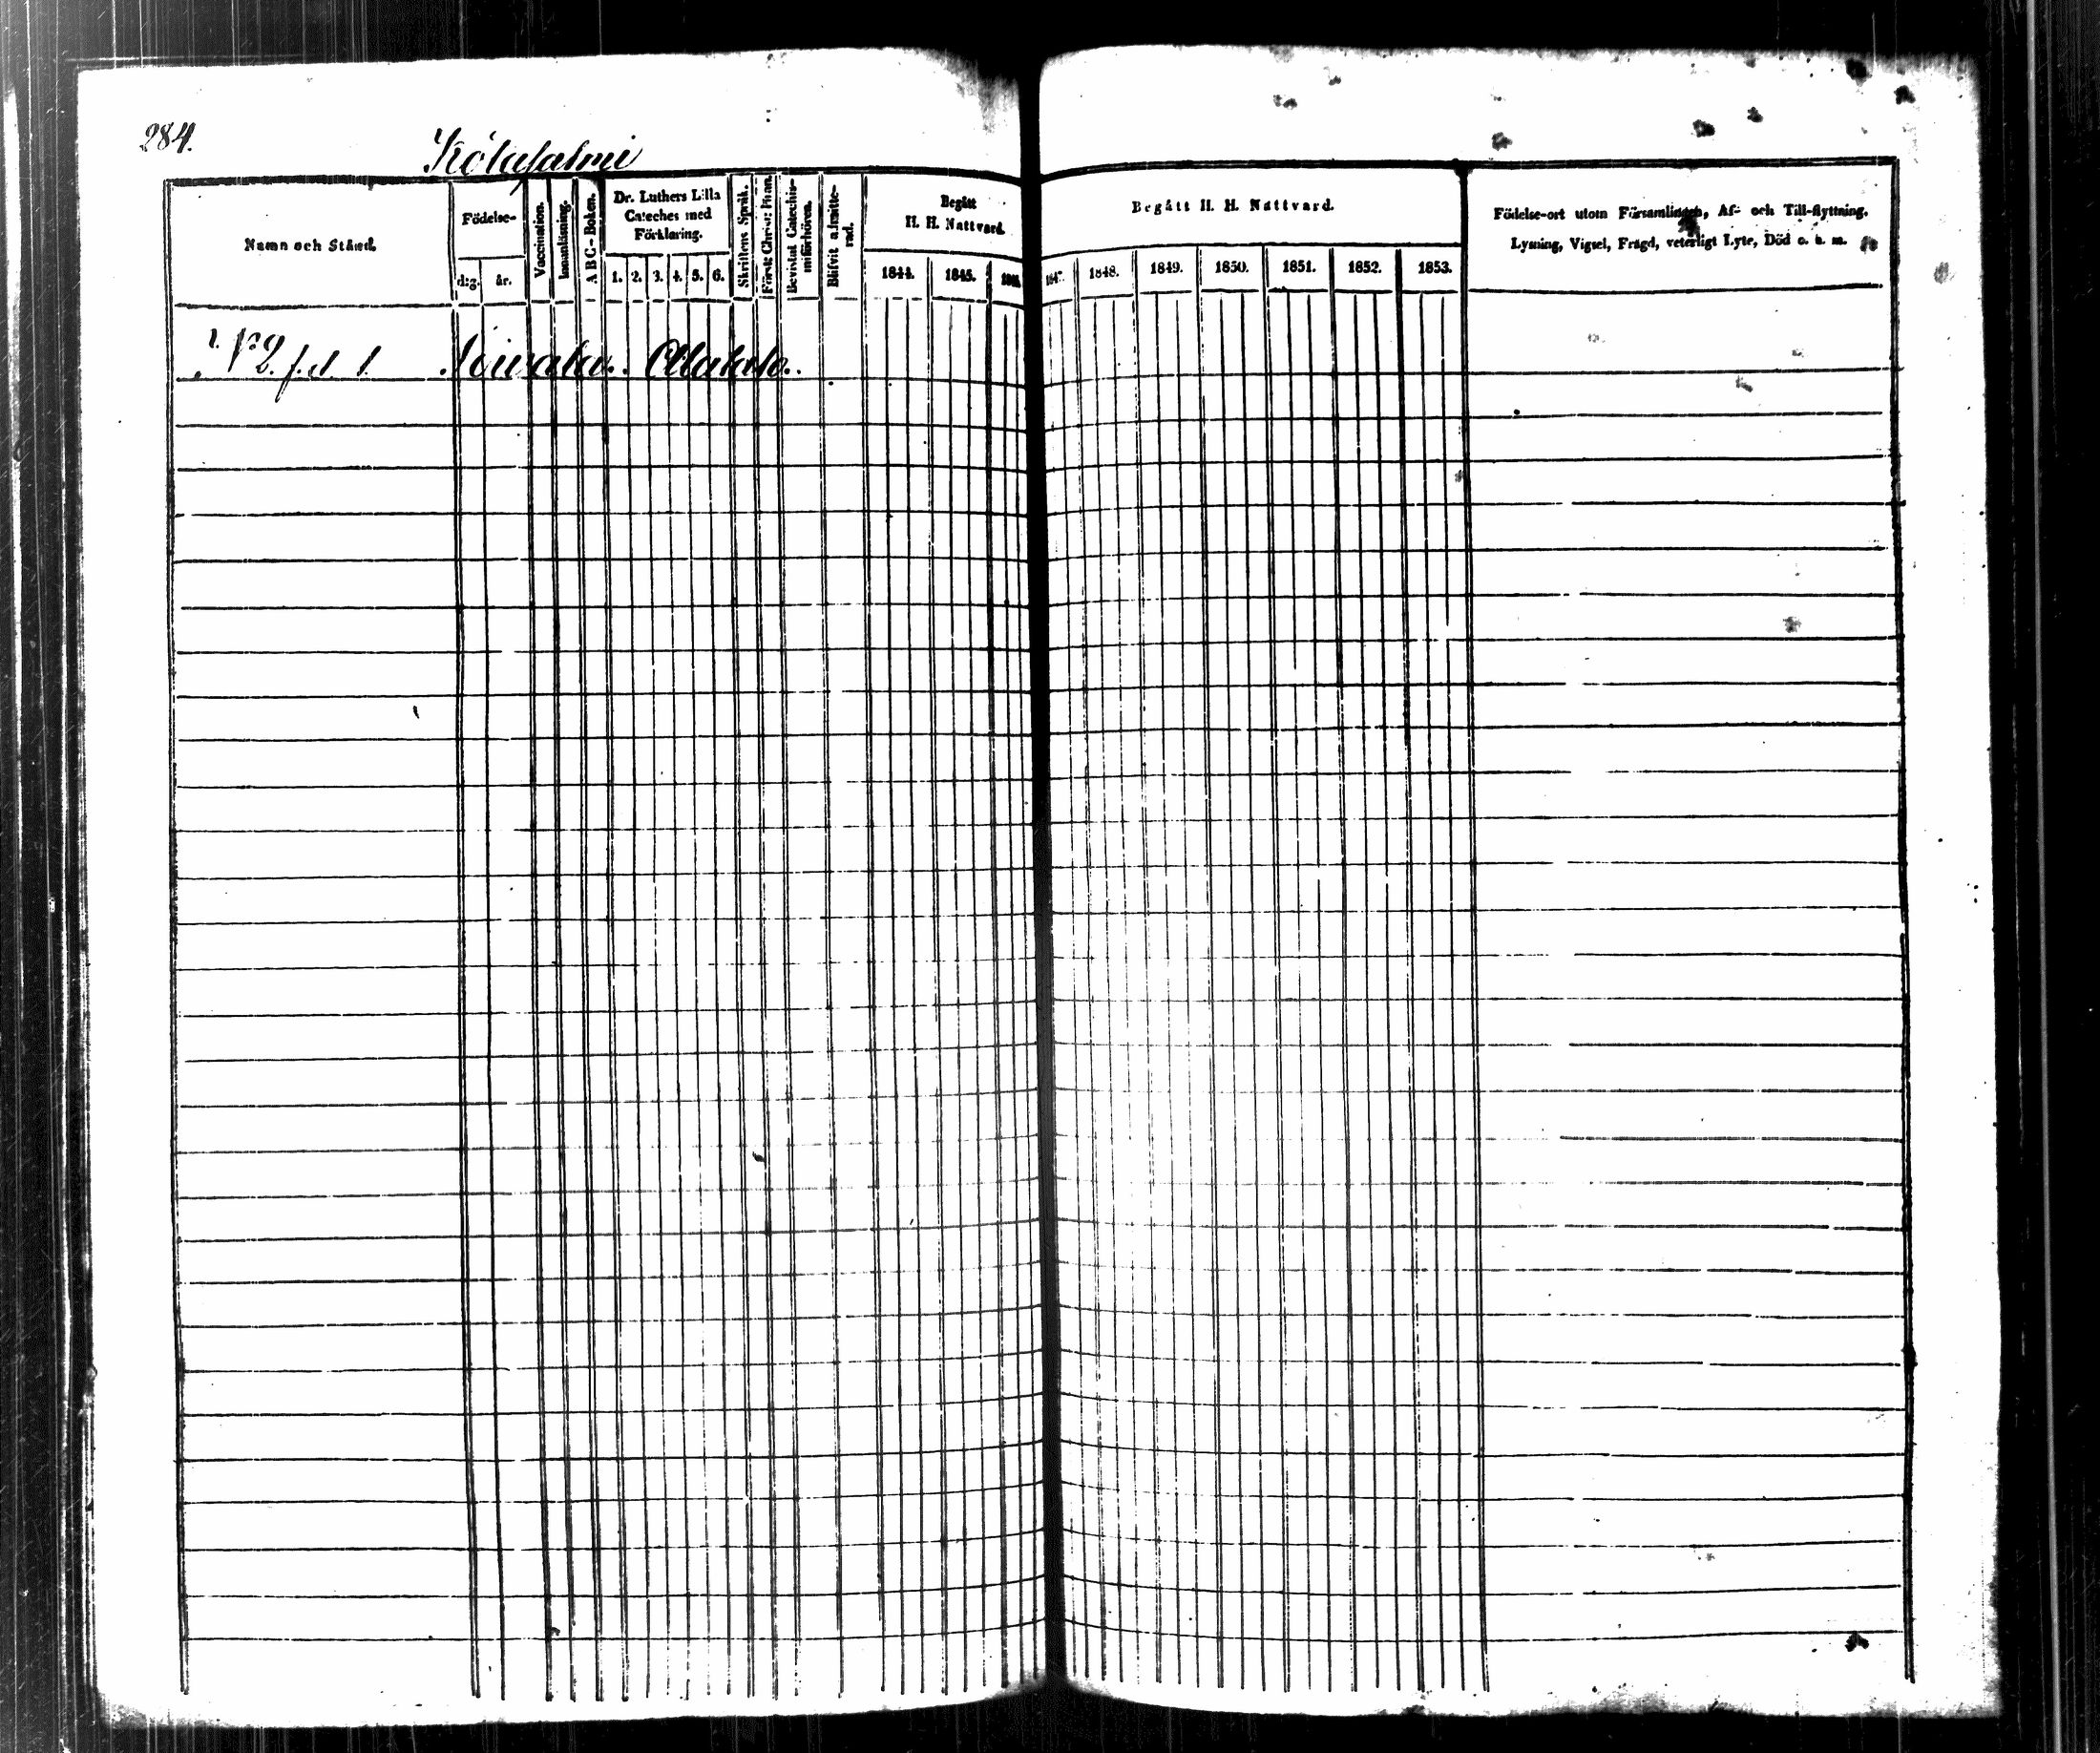 284.
Kölajalmi
Namn och Stånd.
Födelse-
dag.
år.
Vaccination.
Innanläsning.
A B C-Boken.
Dr. Luthers Lilla
Cateches med
Förklaring.
1. 2. 3. 4. 5. 6.
Skriftens Språk.
Först: Christ: Finn.
Bevistat Catechis-
miförhören.
Blifvit admitte-
rad.
Begått
H. H. Nattvard.
1844. 1845. 1846.
Begått H. H. Nattvard.
1847. 1848. 1849. 1850. 1851. 1852. 1853.
Födelse-ort utom Församlingen, Af- och Till-flyttning,
Lysning, Vigsel, Frägd, veterligt Lyte, Död o. s. m.
N 2. f. d. 1.